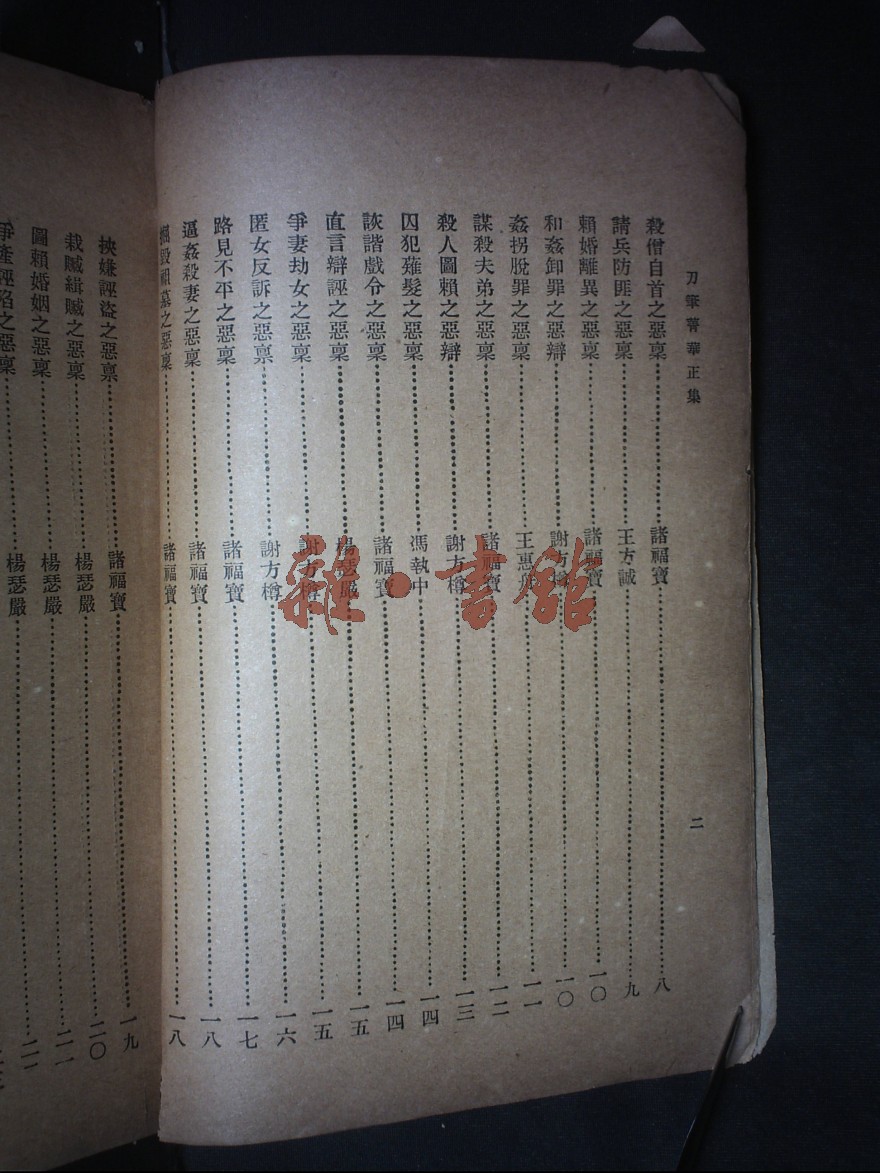 刀筆菁華正集
二
殺僧自首之惡稟 諸福寶 八
請兵防匪之惡稟 王方誠 九
賴婚離異之惡稟 諸福寶 一〇
和姦卸罪之惡辯 謝方樽 一〇
姦拐脫罪之惡稟 王惠 一一
謀殺夫弟之惡稟 諸福寶 一二
殺人圖賴之惡辯 謝方樽 一三
囚犯薙髮之惡稟 馮執中 一四
詼諧戲令之惡稟 諸福寶 一四
直言辯誣之惡稟 楊瑟嚴 一五
爭妻劫女之惡稟 謝方樽 一五
匿女反訴之惡稟 謝方樽 一六
路見不平之惡稟 諸福寶 一七
逼姦殺妻之惡稟 諸福寶 一八
掘毀祖墓之惡稟 諸福寶 一八
挾嫌誣盜之惡稟 諸福寶 一九
栽贓緝贓之惡稟 楊瑟嚴 二〇
圖賴婚姻之惡稟 楊瑟嚴 二一
爭產誣陷之惡稟 楊瑟嚴
雜·書館